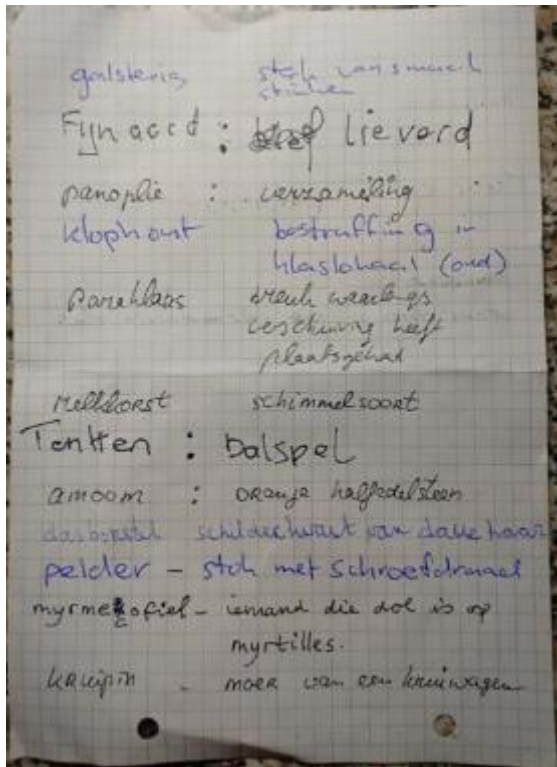 galsterig stof van smaak
stinken
Fijnaard : lieverd
panoplie : verzameling :
klophout bestraffing in
klaslokaal (oud)
paraklaas breuk waarlangs
verschuiving heeft
plaatsgehad
melkkorst schimmelsoort
Tentten : balspel
amoom : oranje halfedelsteen
dasborstel schilderkwast van dashaar
pelder - stok met schroefdraad
myrmecofiel - iemand die dol is op
myrtilles.
kruipin - moer van een kruiwagen